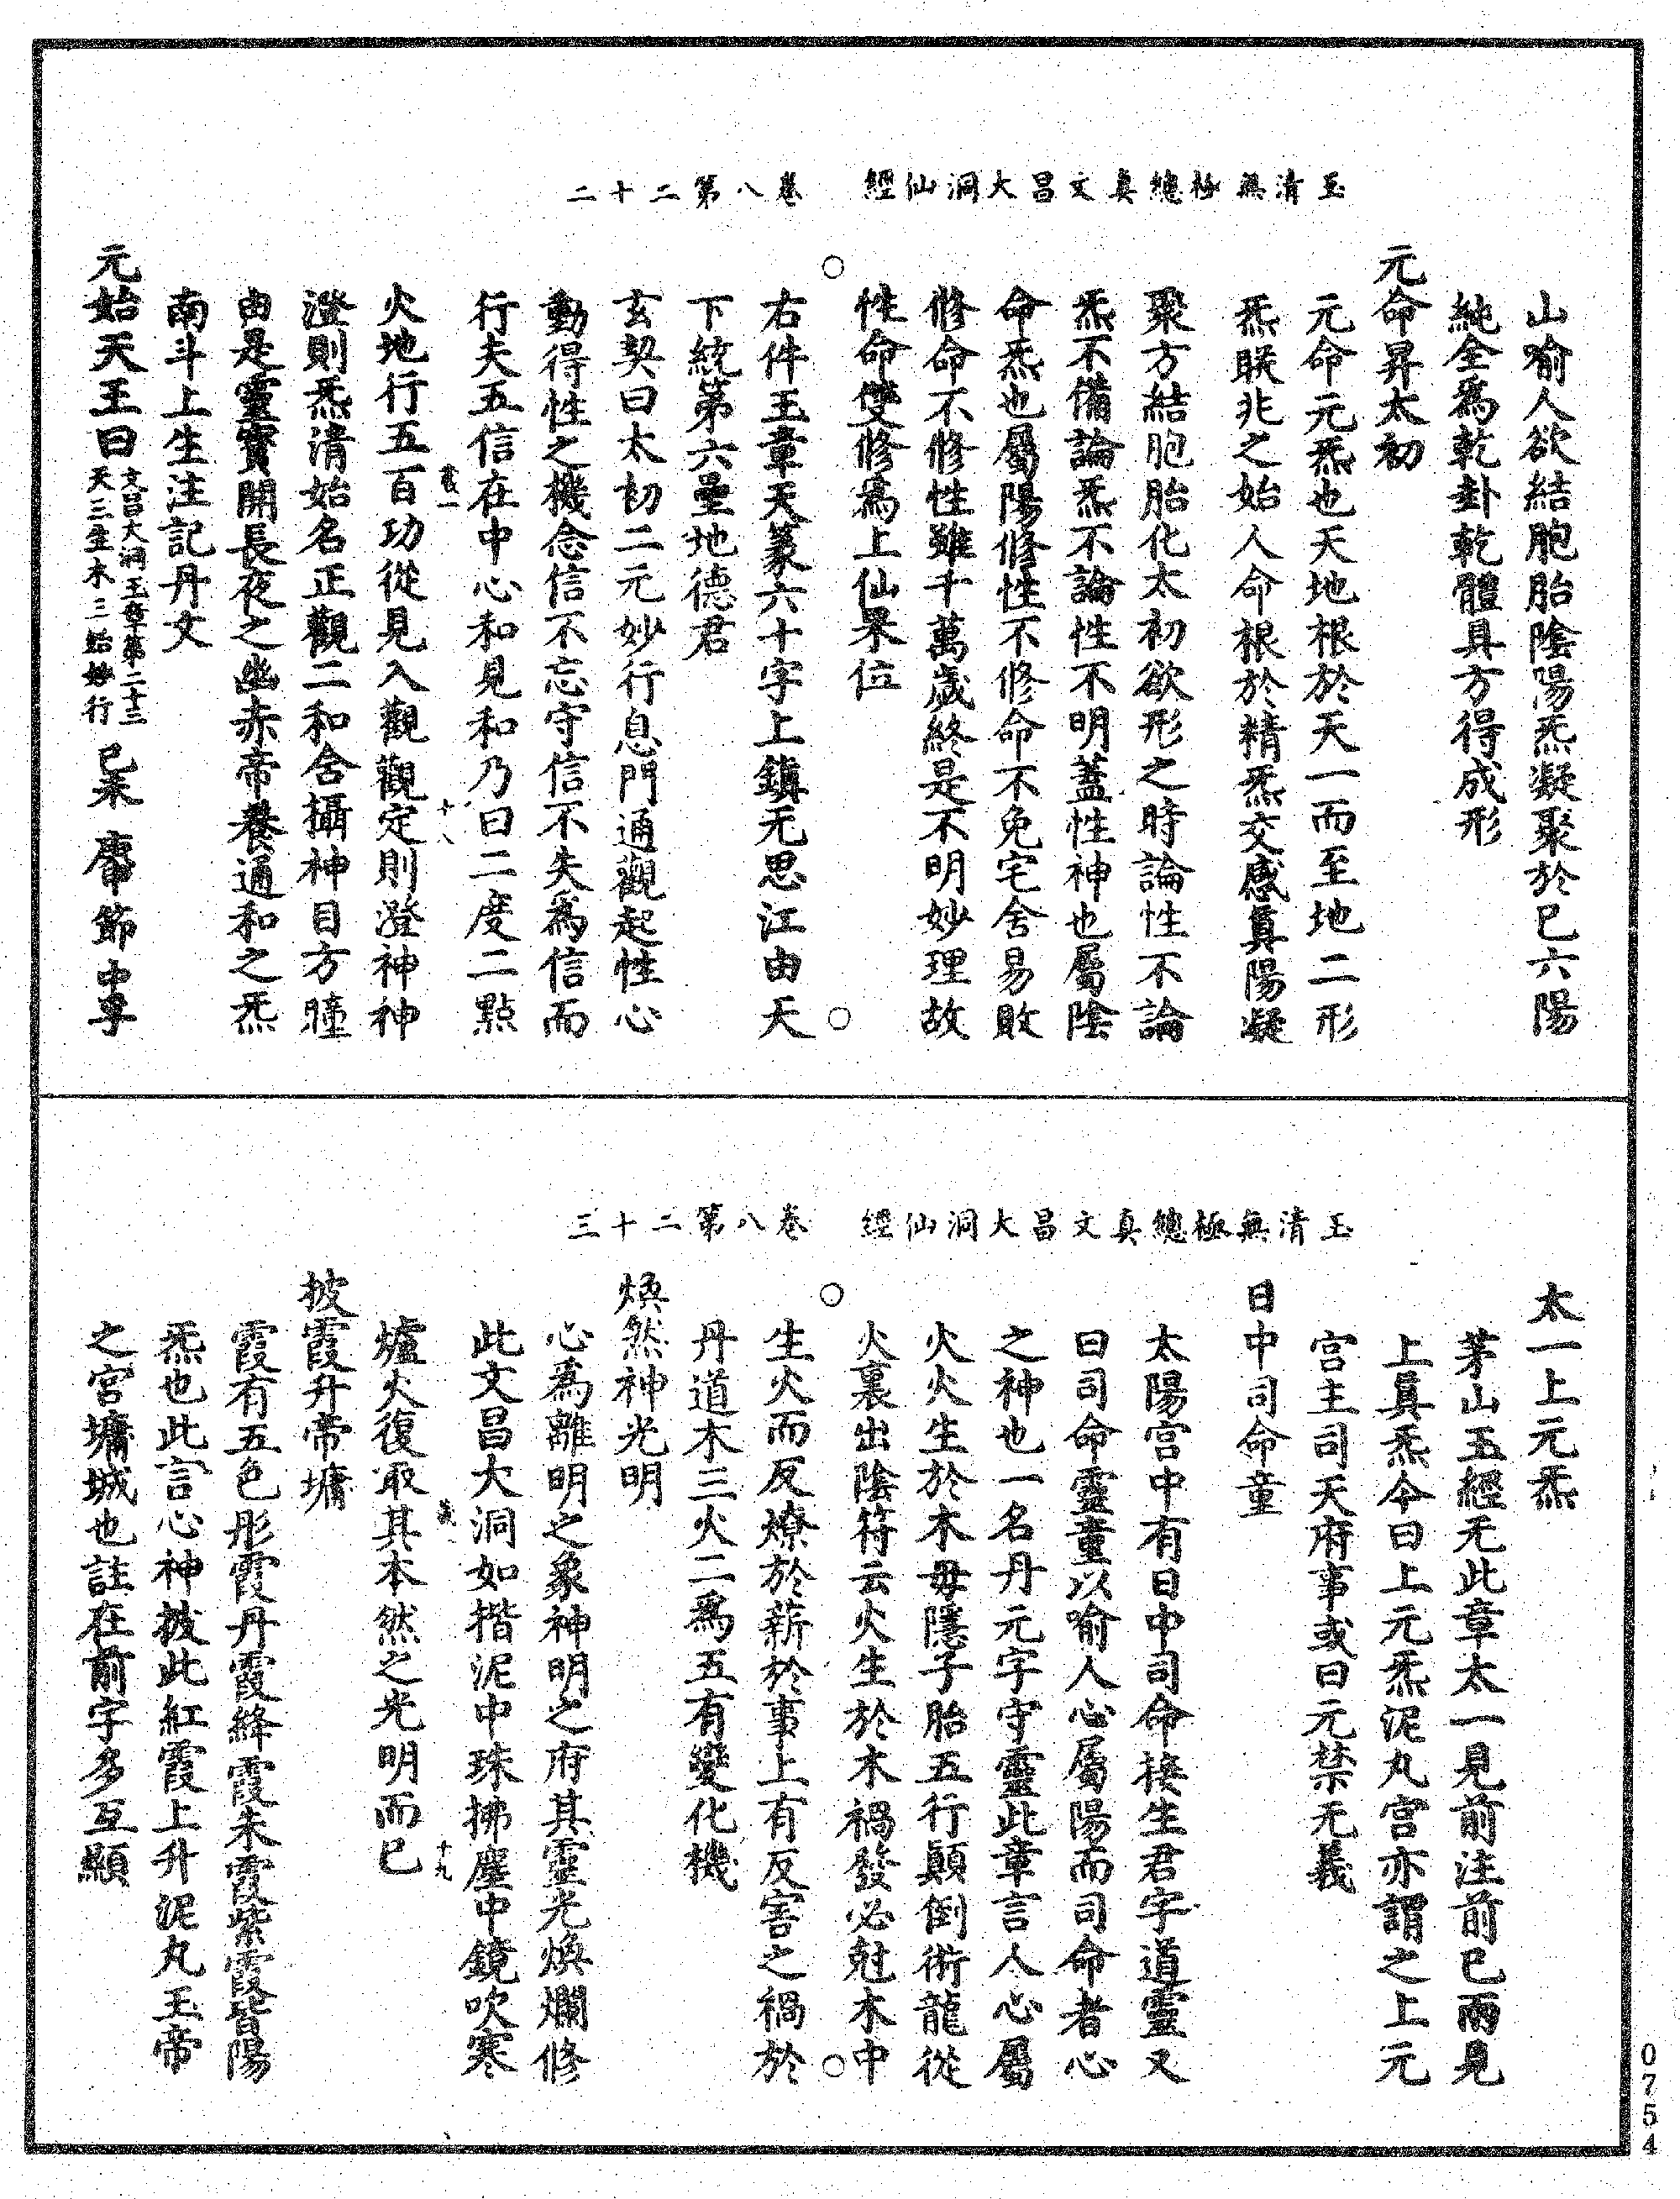 玉清無極總真文昌大洞仙經　卷八第二十二
山喻人欲結胞胎陰陽炁凝聚於巳六陽
純全爲乾卦乾體具方得成形
元命昇太初
元命元炁也天地根於天一而至地二形
炁朕兆之始人命根於精炁交感真陽凝
聚方結胞胎化太初欲形之時論性不論
炁不備論炁不論性不明蓋性神也屬陰
命炁也屬陽修性不修命不免宅舍易敗
修命不修性雖千萬歲終是不明妙理故
性命雙修爲上仙果位
○　○
右件玉章天篆六十字上鎮无思江由天
下統第六壘地德君
玄契曰太初二元妙行息門通觀起性心
動得性之機念信不忘守信不失爲信而
行夫五信在中心和見和乃曰二度二點
十八
火地行五百功從見入觀觀定則澄神神
澄則炁清始名正觀二和舍攝神目方瞳
由是靈寶開長夜之幽赤帝養通和之炁
南斗上生注記丹文
元始天王曰文昌大洞玉章第二十三天三生木三點妙行
玉清無極總真文昌大洞仙經　卷八第二十三
太一上元炁
茅山玉經无此章太一見前注前已兩見
上真炁今曰上元炁泥丸宫亦謂之上元
宫主司天府事或曰元禁无義
日中司命童
太陽宫中有日中司命接生君字道靈又
曰司命靈童以喻人心屬陽而司命者心
之神也一名丹元字守靈此章言人心屬
火火生於木毋隱子胎五行顛倒術龍從
火裏出陰符云火生於木禍發必尅木中
○　○
生火而反燎於薪於事上有反害之禍於
丹道木三火二爲五有變化機
煥然神光明
心爲離明之象神明之府其靈光煥爛修
此文昌大洞如揩泥中珠拂塵中鏡吹寒
十九
爐火復取其本然之光明而已
披霞升帝墉
霞有五色彤霞丹霞絳霞朱霞紫霞皆陽
炁也此言心神披此紅霞上升泥丸玉帝
之宫墉城也註在前字多互顯
0754